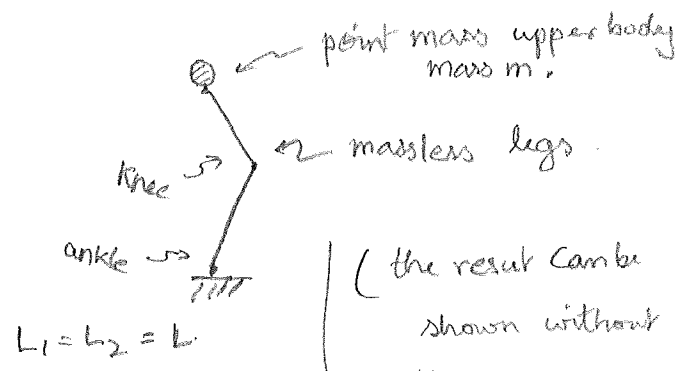 point mass upper body
mass m.
massless legs.
Knee
ankle
( the resut Can be
shown without
L₁ = L₂ = L.